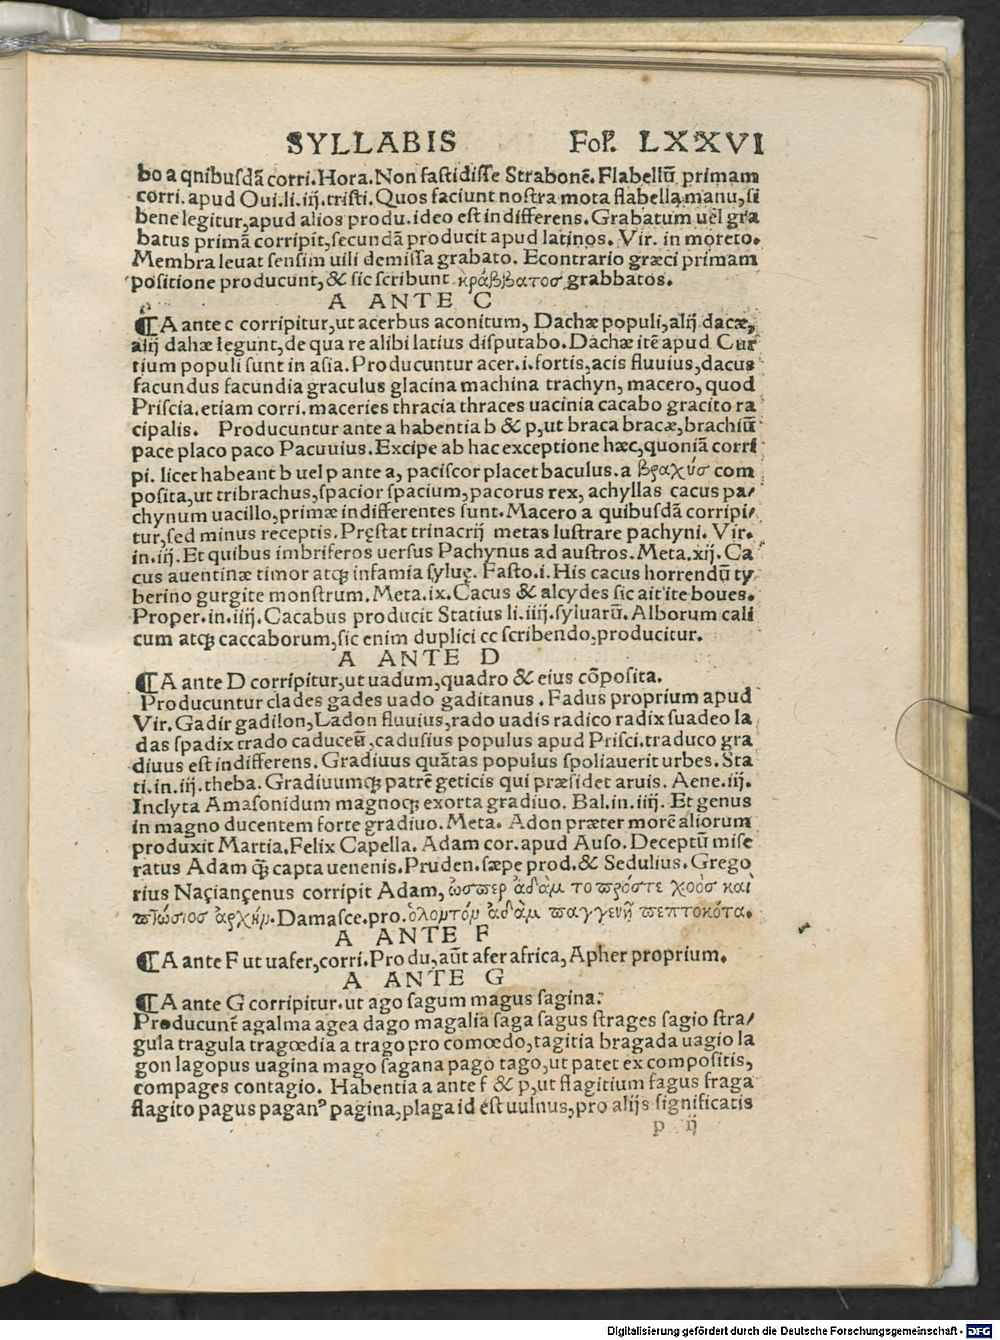 SYLLABIS Foł. LXXVI
bo a qnibuſdā corri. Hora. Non faſtidiſſe Strabonē. Flabellū primam
corri. apud Oui. li. iij. triſti. Quos faciunt noſtra mota flabella manu, ſi
bene legitur, apud alios produ. ideo eſt indifferens. Grabatum uel gra
batus primā corripit, ſecundā producit apud latinos. Vir. in moreto.
Membra leuat ſenſim uili demiſſa grabato. Econtrario græci primam
poſitione producunt, & ſic ſcribunt κράββατοσ grabbatos.
A ANTE C
¶ A ante c corripitur, ut acerbus aconitum, Dachæ populi, alij dacæ,
alij dahæ legunt, de qua re alibi latius diſputabo. Dachæ itē apud Cur
tium populi ſunt in aſia. Producuntur acer. i. fortis, acis fluuius, dacus
facundus facundia graculus glacina machina trachyn, macero, quod
Priſcia. etiam corri. maceries thracia thraces uacinia cacabo gracito ra
cipalis. Producuntur ante a habentia b & p, ut braca bracæ, brachiū
pace placo paco Pacuuius. Excipe ab hac exceptione hæc, quoniā corri
pi. licet habeant b uel p ante a, paciſcor placet baculus. a βραχύσ com
poſita, ut tribrachus, ſpacior ſpacium, pacorus rex, achyllas cacus pa/
chynum uacillo, primæ indifferentes ſunt. Macero a quibuſdā corripi/
tur, ſed minus receptis. Pręſtat trinacrij metas luſtrare pachyni. Vir.
in. iij. Et quibus imbriferos uerſus Pachynus ad auſtros. Meta. xij. Ca
cus auentinæ timor atqꝫ infamia ſyluę. Faſto. i. His cacus horrendū ty
berino gurgite monſtrum. Meta. ix. Cacus & alcydes ſic ait ite boues.
Proper. in. iiij. Cacabus producit Statius li. iiij. ſyluarū. Alborum cali
cum atqꝫ caccaborum, ſic enim duplici cc ſcribendo, producitur.
A ANTE D
¶ A ante D corripitur, ut uadum, quadro & eius cōpoſita.
Producuntur clades gades uado gaditanus. Fadus proprium apud
Vir. Gadir gadilon, Ladon fluuius, rado uadis radico radix ſuadeo la
das ſpadix trado caduceū, caduſius populus apud Priſci. traduco gra
diuus eſt indifferens. Gradiuus quātas populus ſpoliauerit urbes. Sta
ti. in. iij. theba. Gradiuumqꝫ patrē geticis qui præſidet aruis. Aene. iij.
Inclyta Amaſonidum magnoqꝫ exorta gradiuo. Bal. in. iiij. Et genus
in magno ducentem forte gradiuo. Meta. Adon præter morē aliorum
produxit Martia. Felix Capella. Adam cor. apud Auſo. Deceptū miſe
ratus Adam qꝫ̄ capta uenenis. Pruden. ſæpę prod. & Sedulius. Grego
rius Naçiançenus corripit Adam, ὡσπερ ἀδὰμ το πρόστε χοὸσ καὶ
πτώσιοσ ἀρχήν. Damaſce. pro. ὁλοντόν ἀδὰμ παγγενῆ πεπτοκότα.
A ANTE F
¶ A ante F ut uafer, corri. Produ, aūt afer africa, Apher proprium.
A ANTE G
¶ A ante G corripitur. ut ago ſagum magus ſagina.
Producunt̄ agalma agea dago magalia ſaga ſagus ſtrages ſagio ſtra/
gula tragula tragœdia a trago pro comœdo, tagitia bragada uagio la
gon lagopus uagina mago ſagana pago tago, ut patet ex compoſitis,
compages contagio. Habentia a ante f & p, ut flagitium fagus fraga
flagito pagus paganꝰ pagina, plaga id eſt uulnus, pro alijs ſignificatis
p ij
Digitalisierung gefördert durch die Deutsche Forschungsgemeinschaft - DFG